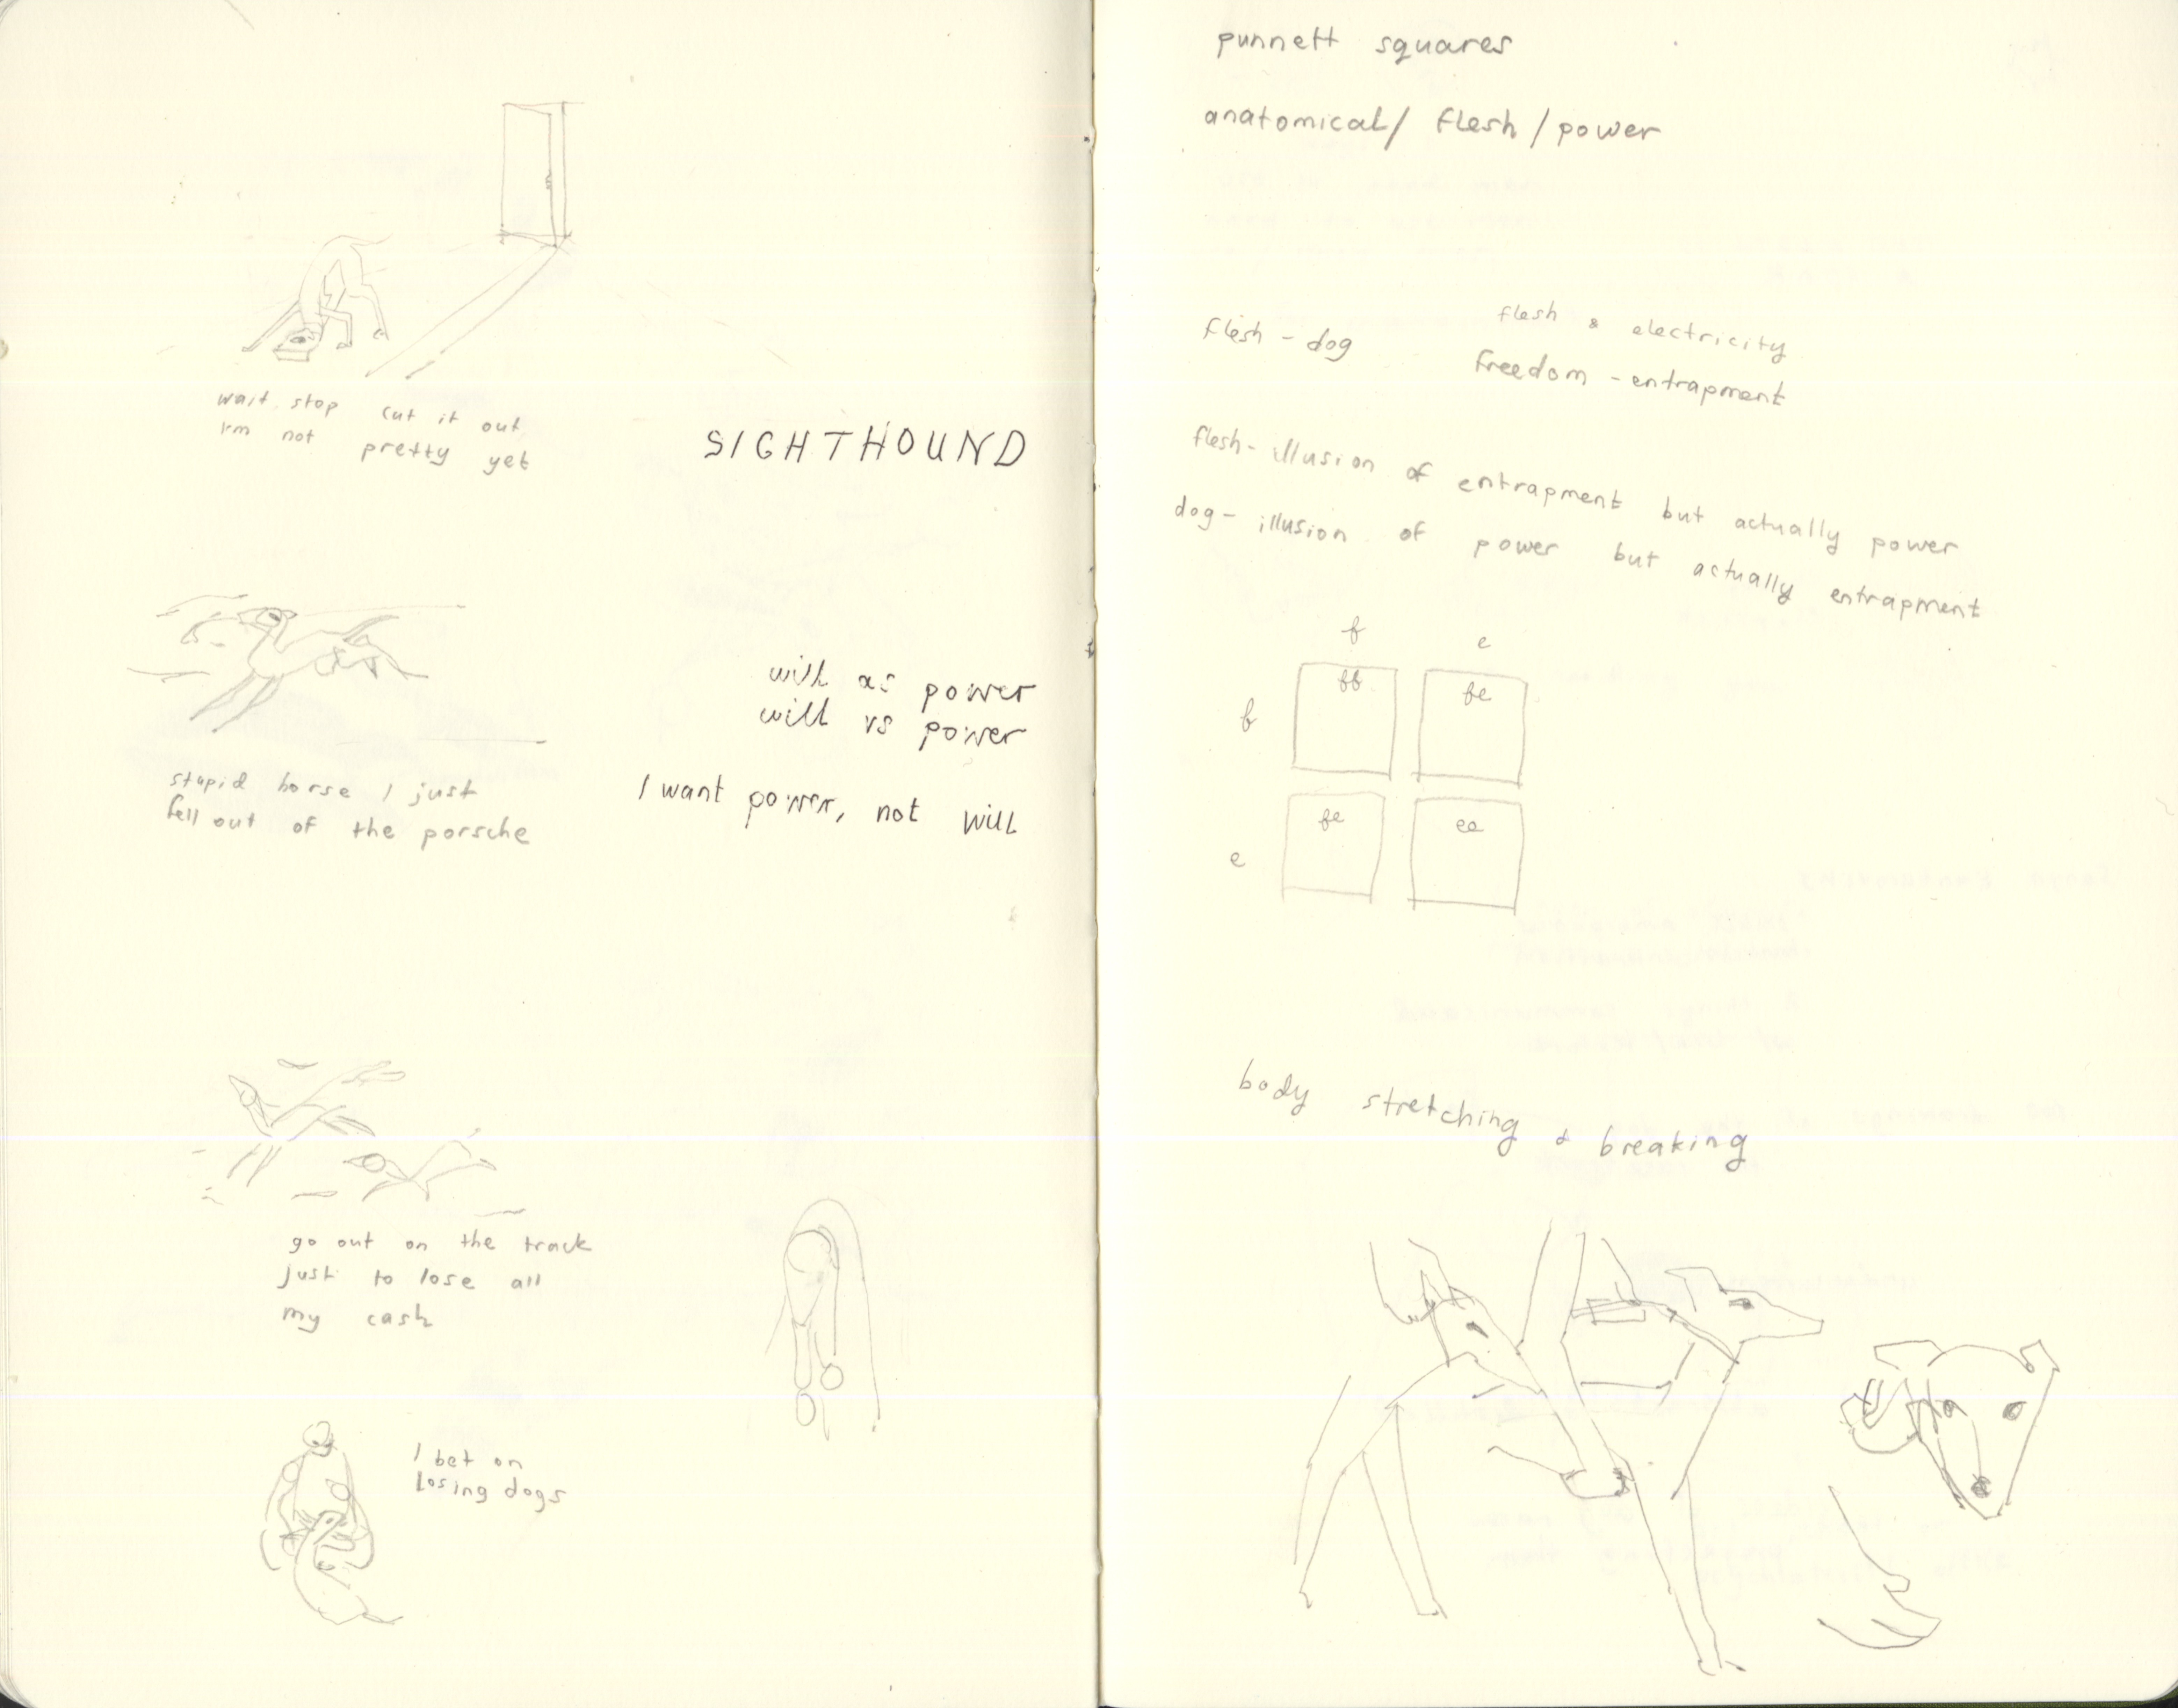 wait stop cut it out
I'm not pretty yet
SIGHTHOUND
stupid horse I just
fell out of the porsche
will as power
will vs power
I want power, not will
go out on the track
just to lose all
my cash
I bet on
losing dogs
punnett squares
anatomical/ flesh/power
flesh - dog
flesh & electricity
freedom - entrapment
flesh- illusion of entrapment but actually power
dog- illusion of power but actually entrapment
f e
f ff fe
e fe ee
body stretching & breaking